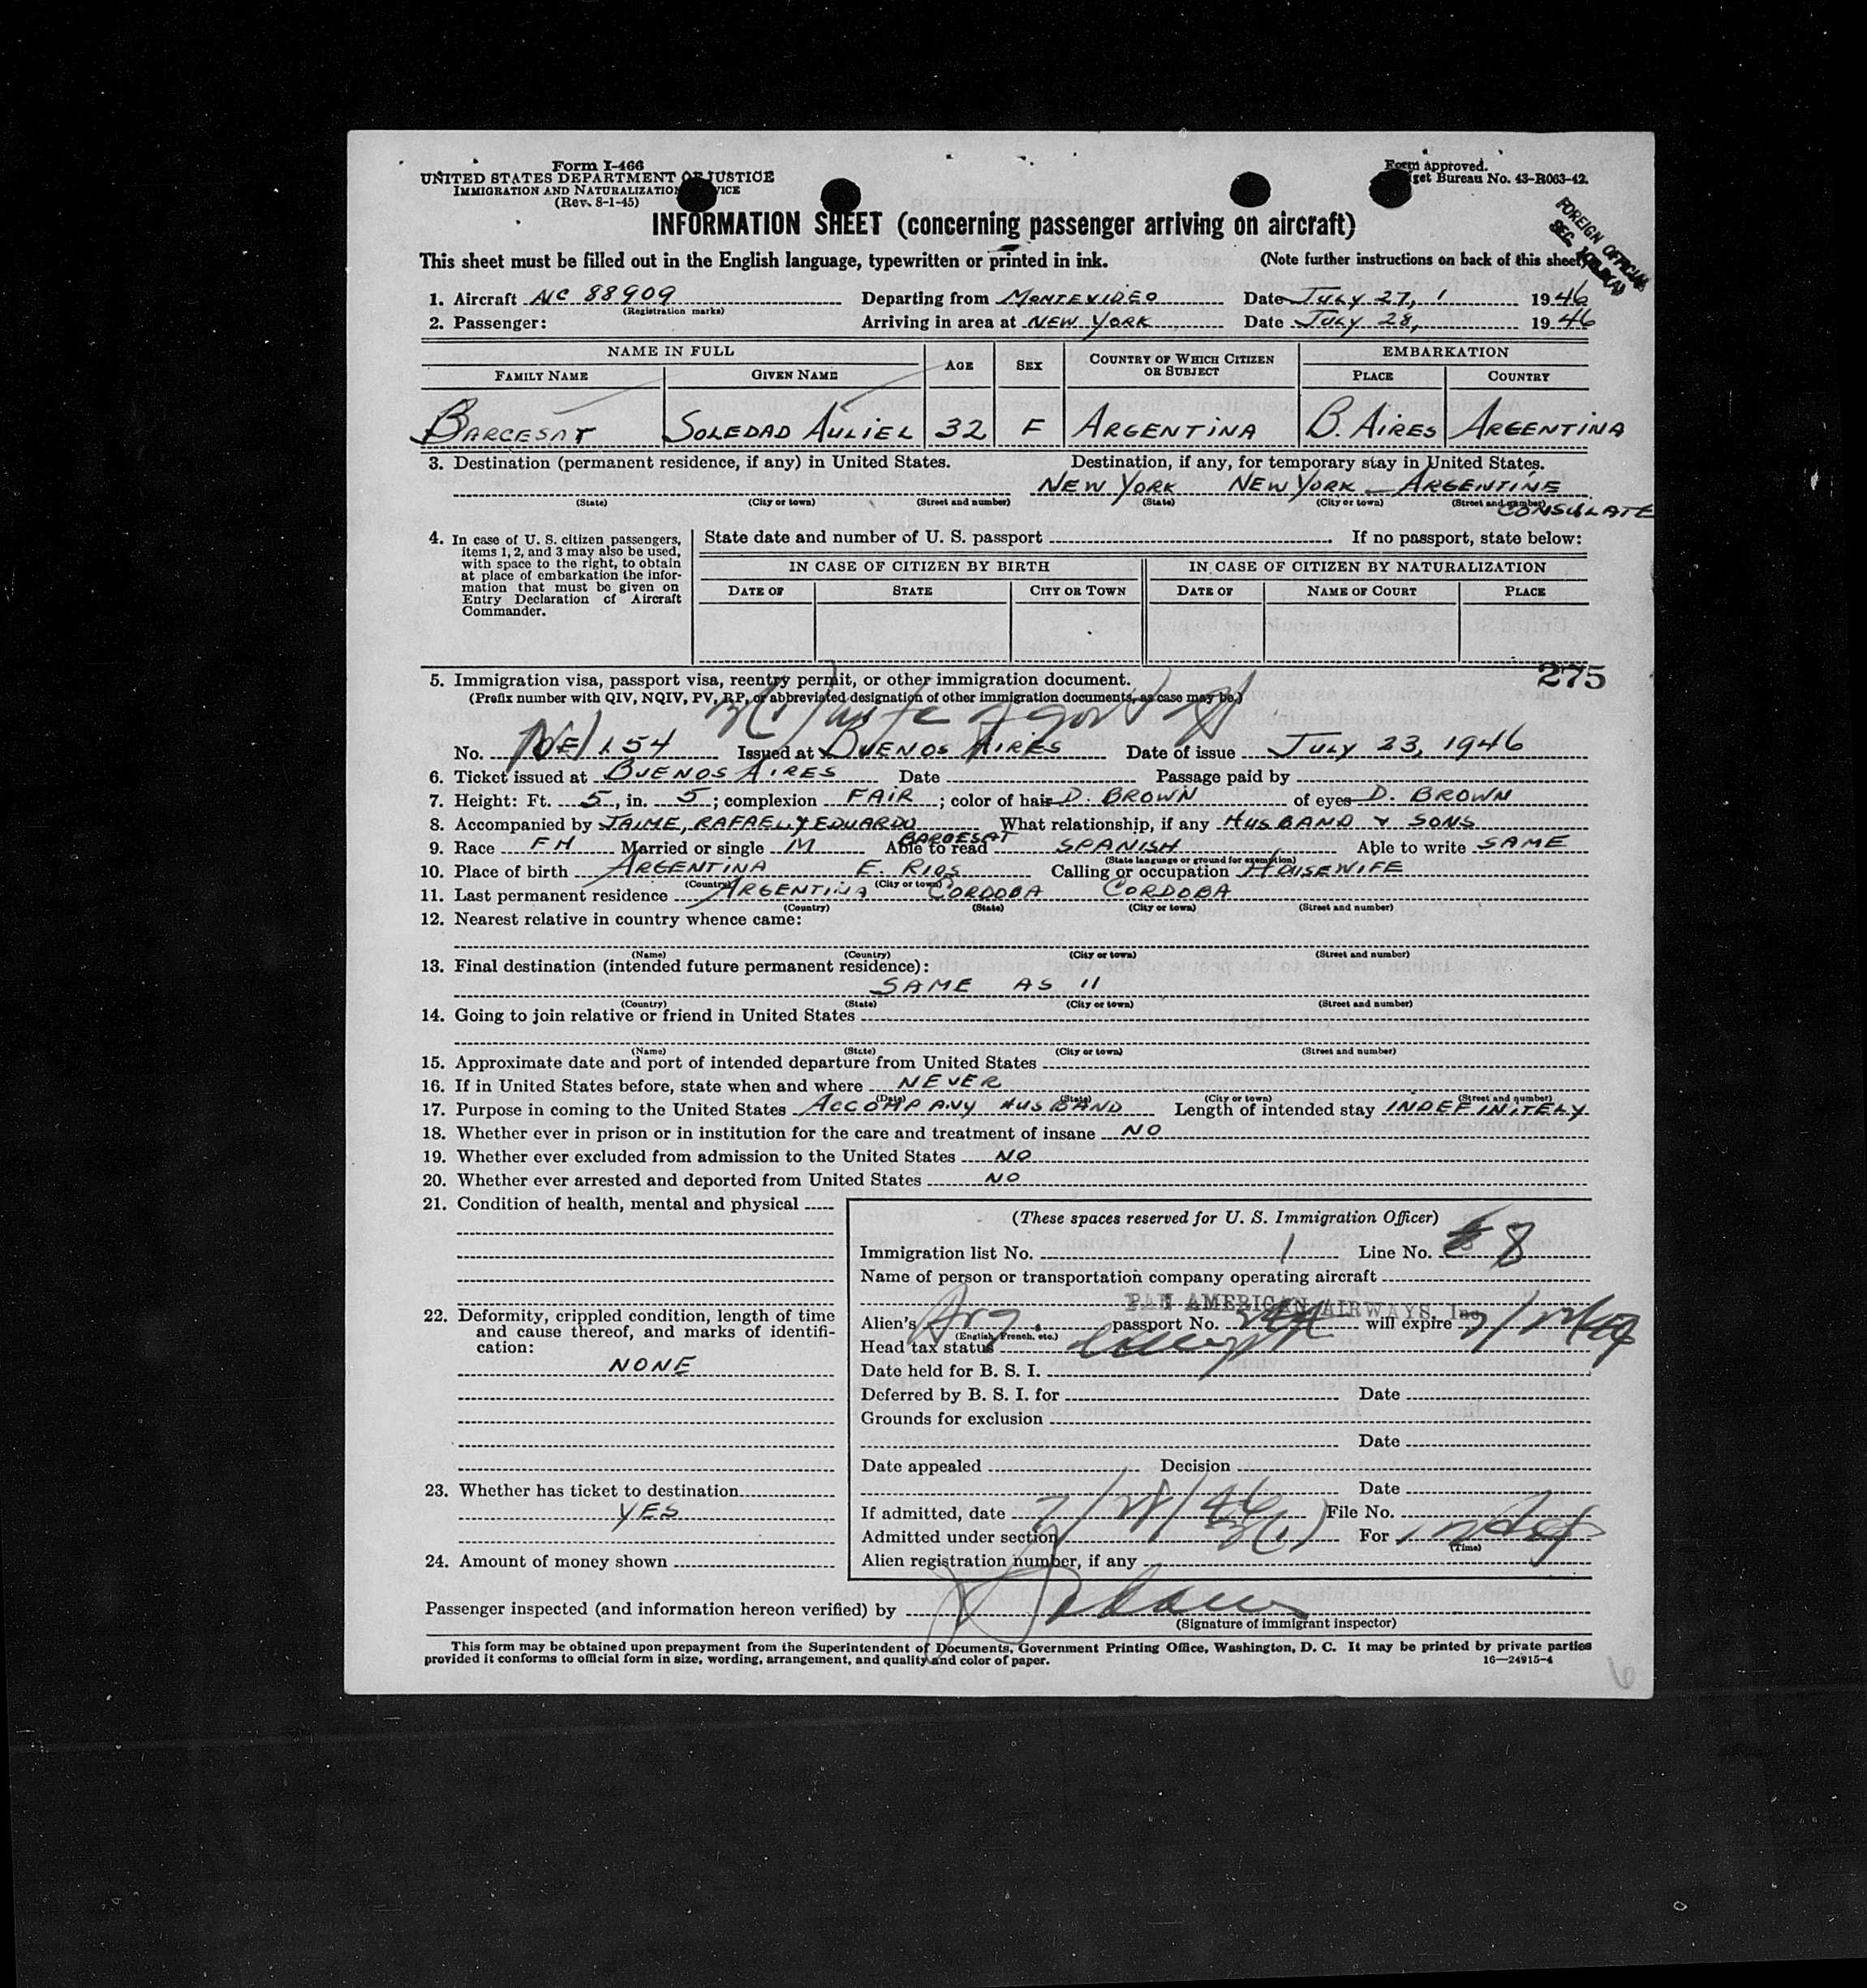 Form I-466
UNITED STATES DEPARTMENT OF JUSTICE
IMMIGRATION AND NATURALIZATION
(Rev. 8-1-45)
Form approved.
Bureau No. 43-R063-42.
FOREIGN OFFICIAL
SEC.
INFORMATION SHEET (concerning passenger arriving on aircraft)
This sheet must be filled out in the English language, typewritten or printed in ink. (Note further instructions on back of this sheet)
1. Aircraft NC 88909 Departing from MONTEVIDEO Date JULY 27, 1946
(Registration marks)
2. Passenger: Arriving in area at NEW YORK Date JULY 28, 1946
NAME IN FULL AGE SEX COUNTRY OF WHICH CITIZEN OR SUBJECT EMBARKATION
FAMILY NAME GIVEN NAME PLACE COUNTRY
BARCESAT SOLEDAD AULIEL 32 F ARGENTINA B. AIRES ARGENTINA
3. Destination (permanent residence, if any) in United States. Destination, if any, for temporary stay in United States.
NEW YORK NEW YORK - ARGENTINE
(State) (City or town) (Street and number) (State) (City or town) (Street and number)
CONSULATE
4. In case of U. S. citizen passengers, items 1, 2, and 3 may also be used, with space to the right, to obtain at place of embarkation the information that must be given on Entry Declaration of Aircraft Commander.
State date and number of U. S. passport If no passport, state below:
IN CASE OF CITIZEN BY BIRTH IN CASE OF CITIZEN BY NATURALIZATION
DATE OF STATE CITY OR TOWN DATE OF NAME OF COURT PLACE
275
5. Immigration visa, passport visa, reentry permit, or other immigration document.
(Prefix number with QIV, NQIV, PV, RP, or abbreviated designation of other immigration documents, as case may be.)
3(1) wife of gov't
No. 154 Issued at BUENOS AIRES Date of issue JULY 23, 1946
6. Ticket issued at BUENOS AIRES Date Passage paid by
7. Height: Ft. 5, in. 5; complexion FAIR; color of hair D. BROWN of eyes D. BROWN
8. Accompanied by JAIME, RAFAEL Y EDUARDO What relationship, if any HUSBAND Y SONS
BARCESAT
9. Race Married or single M Able to read SPANISH Able to write SAME
(State language or ground for exemption)
10. Place of birth ARGENTINA E. RIOS Calling or occupation HOUSEWIFE
(Country) (City or town)
11. Last permanent residence ARGENTINA CORDOBA CORDOBA
(Country) (State) (City or town) (Street and number)
12. Nearest relative in country whence came:
(Name) (Country) (City or town) (Street and number)
13. Final destination (intended future permanent residence):
SAME AS 11
(Country) (State) (City or town) (Street and number)
14. Going to join relative or friend in United States
(Name) (State) (City or town) (Street and number)
15. Approximate date and port of intended departure from United States
16. If in United States before, state when and where NEVER
(Date) (State) (City or town) (Street and number)
17. Purpose in coming to the United States ACCOMPANY HUSBAND Length of intended stay INDEFINITELY
18. Whether ever in prison or in institution for the care and treatment of insane NO
19. Whether ever excluded from admission to the United States NO
20. Whether ever arrested and deported from United States NO
21. Condition of health, mental and physical
22. Deformity, crippled condition, length of time and cause thereof, and marks of identification:
NONE
23. Whether has ticket to destination
YES
24. Amount of money shown
(These spaces reserved for U. S. Immigration Officer)
Immigration list No. 1 Line No. 8
Name of person or transportation company operating aircraft
PAN AMERICAN AIRWAYS, Inc.
Alien's Arg. passport No. will expire
(English, French, etc.)
Head tax status
Date held for B. S. I.
Deferred by B. S. I. for Date
Grounds for exclusion
Date
Date appealed Decision
Date
If admitted, date 7/28/46 File No.
Admitted under section 3(1) For
(Time)
Alien registration number, if any
Passenger inspected (and information hereon verified) by
(Signature of immigrant inspector)
This form may be obtained upon prepayment from the Superintendent of Documents, Government Printing Office, Washington, D. C. It may be printed by private parties
provided it conforms to official form in size, wording, arrangement, and quality and color of paper. 16—24915-4
6